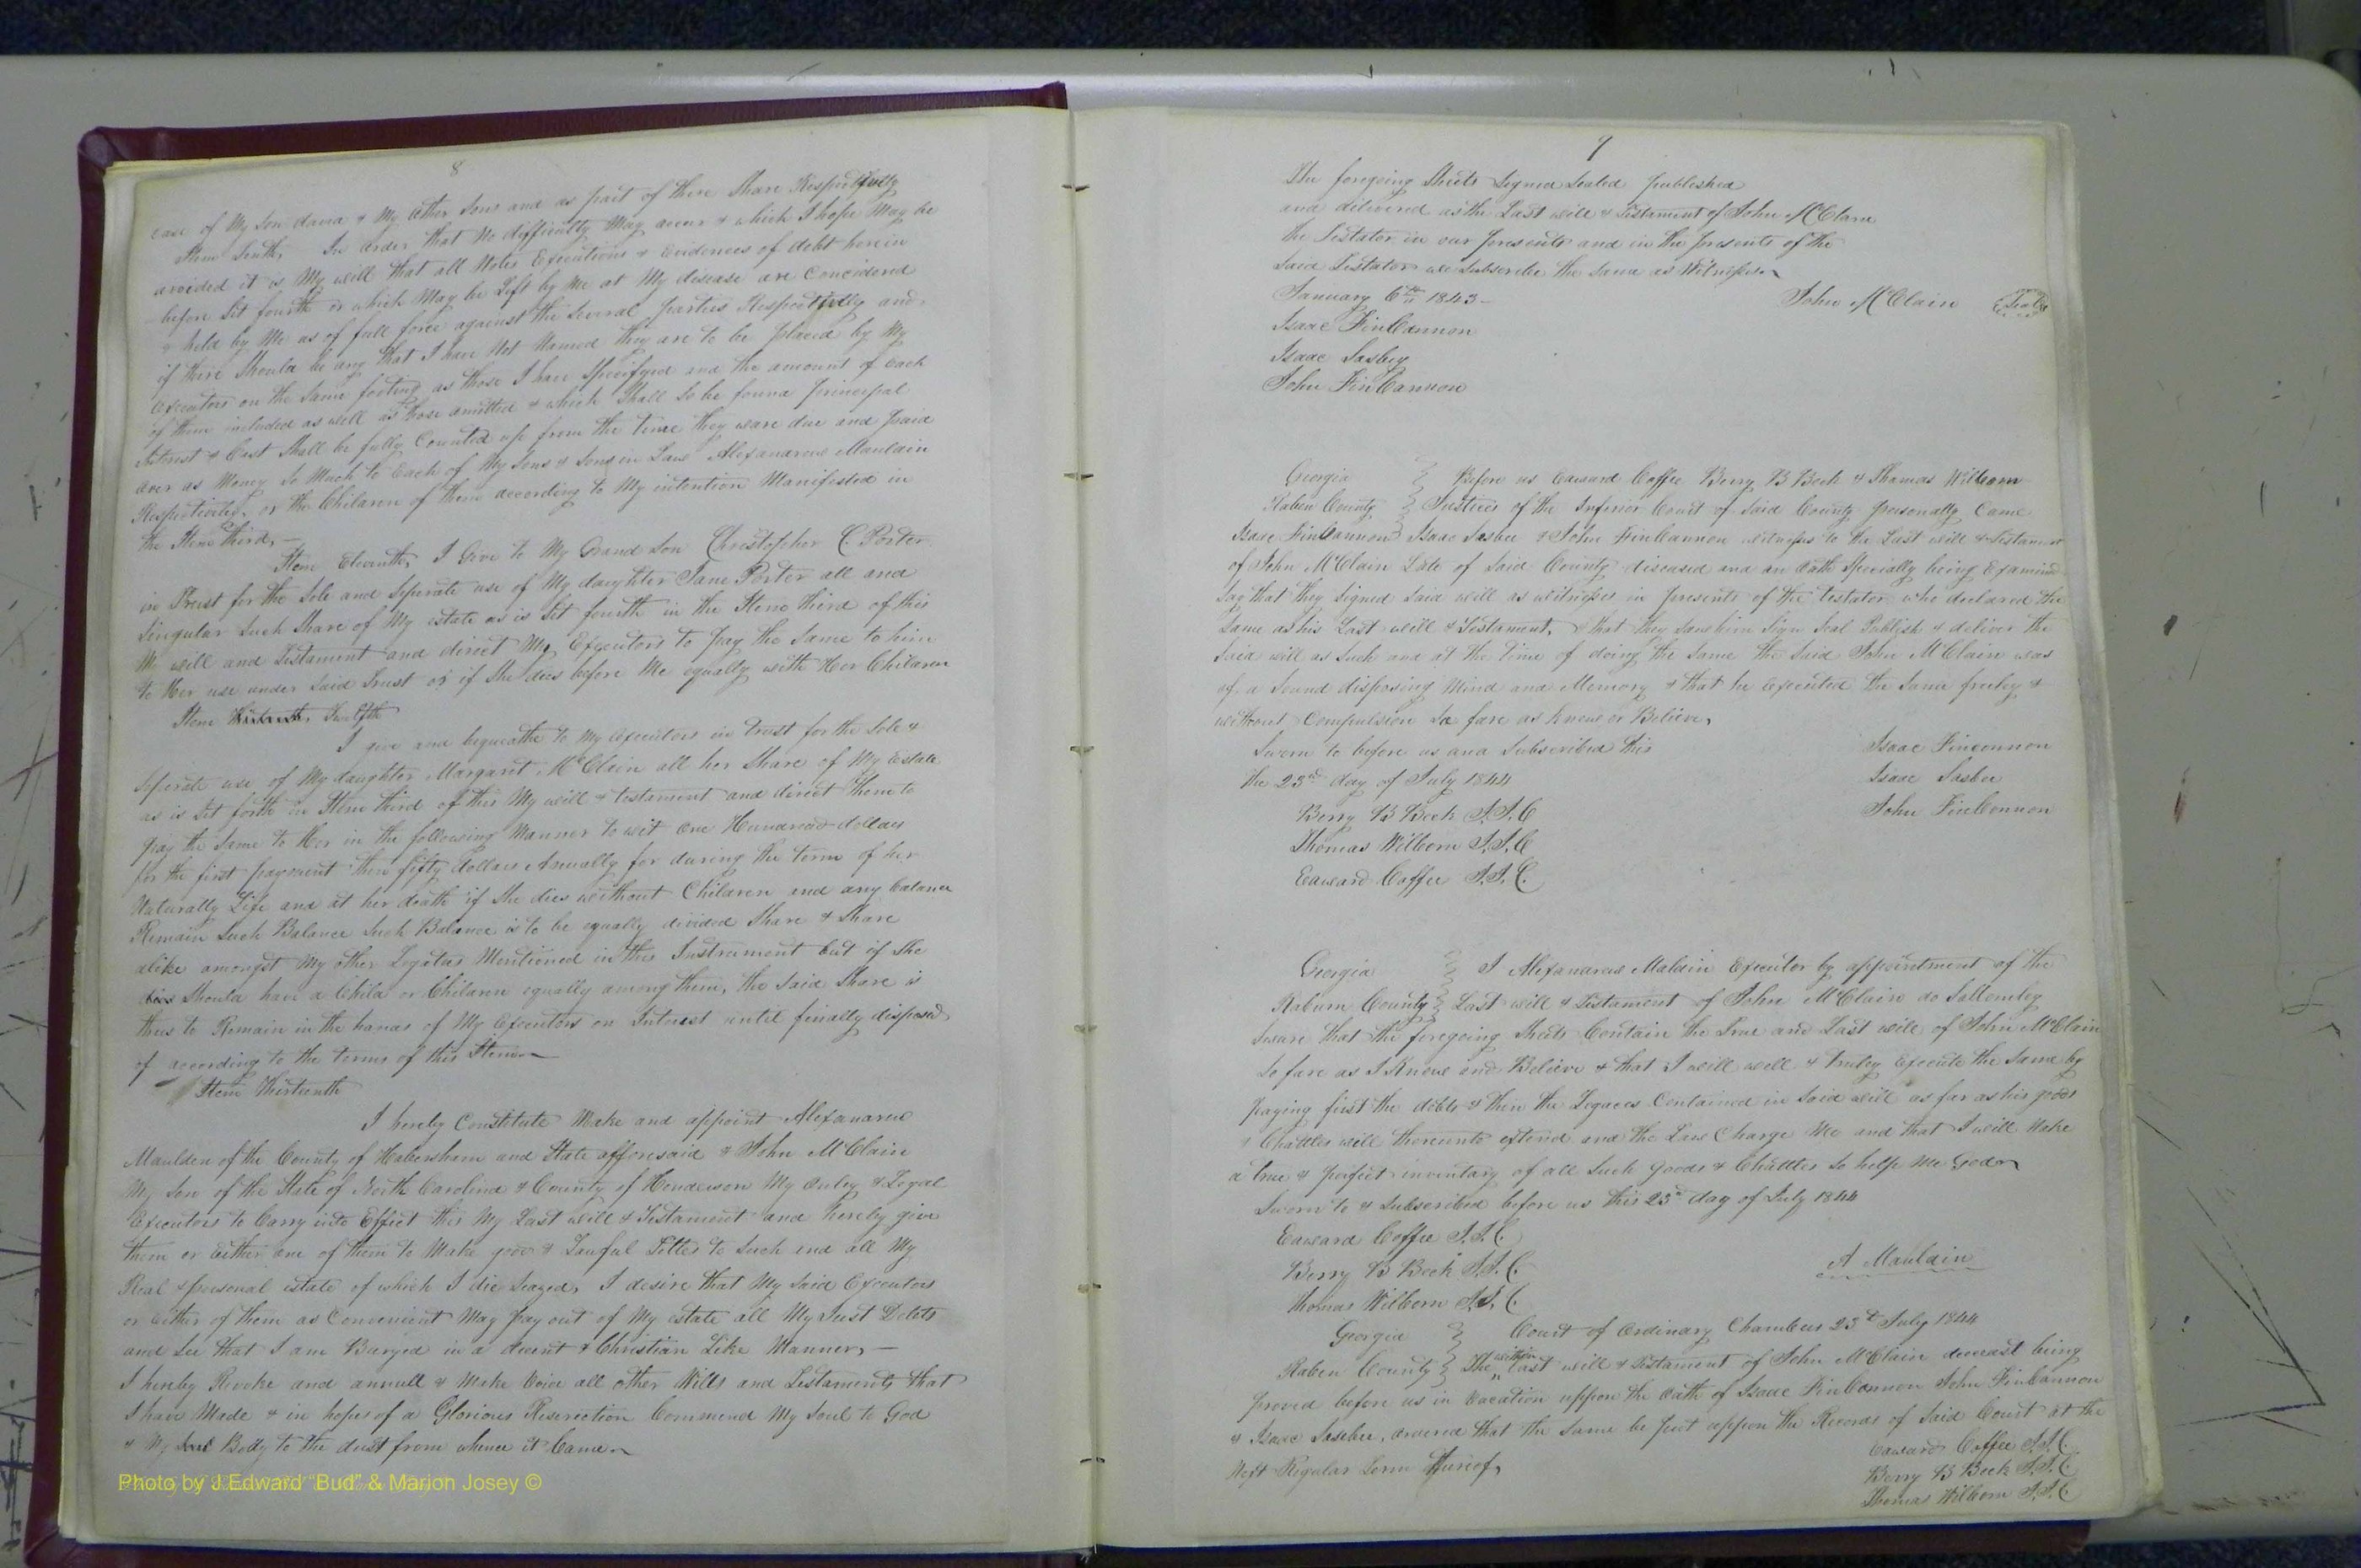 8
case of My Son david & My other Sons and as part of there Share Respectfully
Item Tenth, In order that No difficulty May accur & which I hope May be
avoided it is My will that all Notes Executions & Evidences of debt herein
before Set fourth or which May be Left by Me at My disease are Concidered
& held by Me as of full force against the Several parties Respectfully and
if there Should be any that I have Not Named they are to be placed by My
executors on the Same footing as those I have Specifyed and the amount of each
of them included as well as those amitted & which Shall So be found principal
Interest & Cost Shall be fully Counted up from the time they ware due and paid
over as Money So Much to Each of My Sons & Sons in Law Alexandrew Mauldain
Respectively, or the Children of them according to My intention Manifested in
the Item third,
Item Eleventh, I Give to My Grand Son Christopher C. Porter
in Trust for the Sole and Seperate use of My daughter Jane Porter all and
Singular Such Share of My estate as is Set fourth in the Item third of this
My will and Testament and direct My Executors to pay the Same to him
to Her use under Said Trust or if She dies before Me equally with Her Children
Item Twelfth
I give and bequeathe to My executors in trust for the Sole &
Seperate use of My daughter Margaret McClain all her Share of My Estate
as is Set forth in Item third of this My will & testament and direct them to
pay the Same to Her in the following Manner to wit One Hundread dollars
for the first payment then fifty dollars Annually for during the term of her
Naturally Life and at her death if She dies without Children and any balance
Remain Such Balance Such Balance is to be equally divided Share & Share
alike amongst My other Legetees Mentioned in this Instrument but if She
dies Should have a Child or Children equally among them, the Said Share is
thus to Remain in the hands of My Executors on Interest until finally disposed
of according to the terms of this Item
Item Thirteenth
I hereby Constitute Make and appoint Alexandrew
Maulden of the County of Habersham and State afforesaid & John McClain
My Son of the State of North Carolina & County of Henderson My Onley & Legal
Executors to Carry into Effect this My Last will & Testament and hereby give
them or either one of them to Make good & Lawful Titles to Such and all My
Real & presonal estate of which I die Seazed, I desire that My Said Executors
or either of them as Convenient May pay out of My estate all My Just Debts
and See that I am Buryed in a decent & Christian Like Manner,
I hereby Revoke and annull & Make Voice all other Wills and Testaments that
I have Made & in hopes of a Glorious Reserection Commend My Soul to God
& My Soul Body to the dust from whence it Came
Photo by J.Edward "Bud" & Marion Josey ©
9
The foregoing Sheets Signed Sealed published
and delivered as the Last will & Testament of John McClane
the Testator in our presents and in the presents of the
Said Testator we Subscribe the Same as Witnesses
January 6th 1843 John McClain Seal
Isaac FinCannon
Isaac Sasbey
John FinCannon
Georgia Before us Edward Coffee Berry B Beck & Thomas Wilborn
Raben County Justices of the Inferior Court of Said County personally Came
Isaac FinCannon Isaac Sasbee & John FinCannon witnesses to the Last will & Testament
of John McClain Late of Said County diseased and on Oath Specially being Examined
Say that they Signed Said will as witnesses in presents of the testator who declared the
Same as his Last will & Testament, & that they Saw him Sign Seal Publish & deliver the
Said will as Such and at the time of doing the Same the Said John McClain was
of a Sound disposing Mind and Memory & that he executed the Same freeley &
without Compulsion So fare as Know or Believe,
Sworn to before us and Subscribed this Isaac Fincannon
the 23rd day of July 1844 Isaac Sasbee
Berry B Beck J.I.C John FinCannon
Thomas Wilborn J.I.C
Edward Coffee J.I.C.
Georgia I Alexandrew Maldin Executor by appointment of the
Raburn County Last will & Testament of John McClain do Sollemley
Sware that the foregoing Sheets Contain the True and Last will of John McClain
So fare as I Know and Believe & that I will well & truley Execute the Same by
paying first the debts & then the Legaces Contained in Said will as far as his goods
& Chattles will thereunto extend and the Law Charge Me and that I will Make
a true & perfect inventary of all Such goods & Chattles So help Me God
Sworn to & Subscribed before us this 23rd day of July 1844
Edward Coffee J.I.C.
Berry B Beck J.I.C. A Mauldain
Thomas Wilborn J.I.C.
Georgia Court of Ordinary Chambers 23rd July 1844
Raben County The within Last will & Testament of John McClain deceast being
proved before us in vacation uppon the Oath of Isaac FinCannon John FinCannon
& Isaac Sasebee, ordered that the Same be put uppon the Records of Said Court at the
Next Regular term thereof, Edward Coffee J.I.C.
Berry B Beck J.I.C.
Thomas Wilborn J.I.C